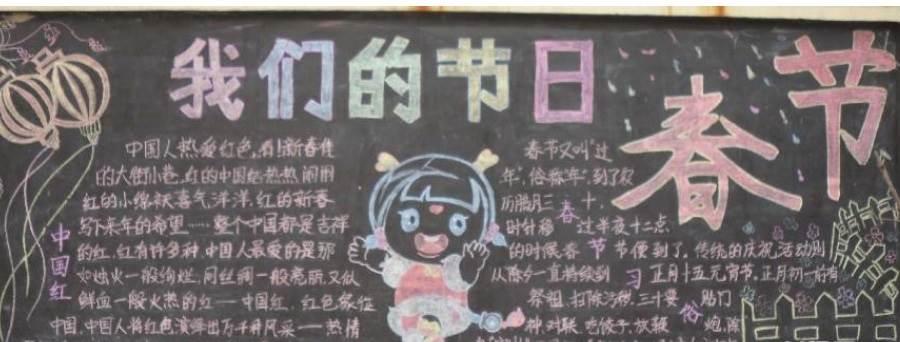 我们的节日
春节
中国红
中国人热爱红色,有!新春佳
的大街小巷,红的中国结热热闹闹
红的小绵袄喜气洋洋,红的新春
写下来年的希望……整个中国都是吉祥
的红,红有许多种,中国人最爱的是那
如烛火一般绚烂,同丝绸一般亮丽,又似
鲜血一般火热的红——中国红,红色
中国,中国人将红色演绎出万千种风采——热情
春节习俗
春节又叫"过
年",俗称"年",到了农
历腊月三十,
时针移过半夜十二点
的时候春节便到了。传统的庆祝活动则
从除夕一直持续到正月十五元宵节,正月初一前有
祭祖,扫除污秽,三十要贴门
神,对联,吃饺子,放鞭炮,除